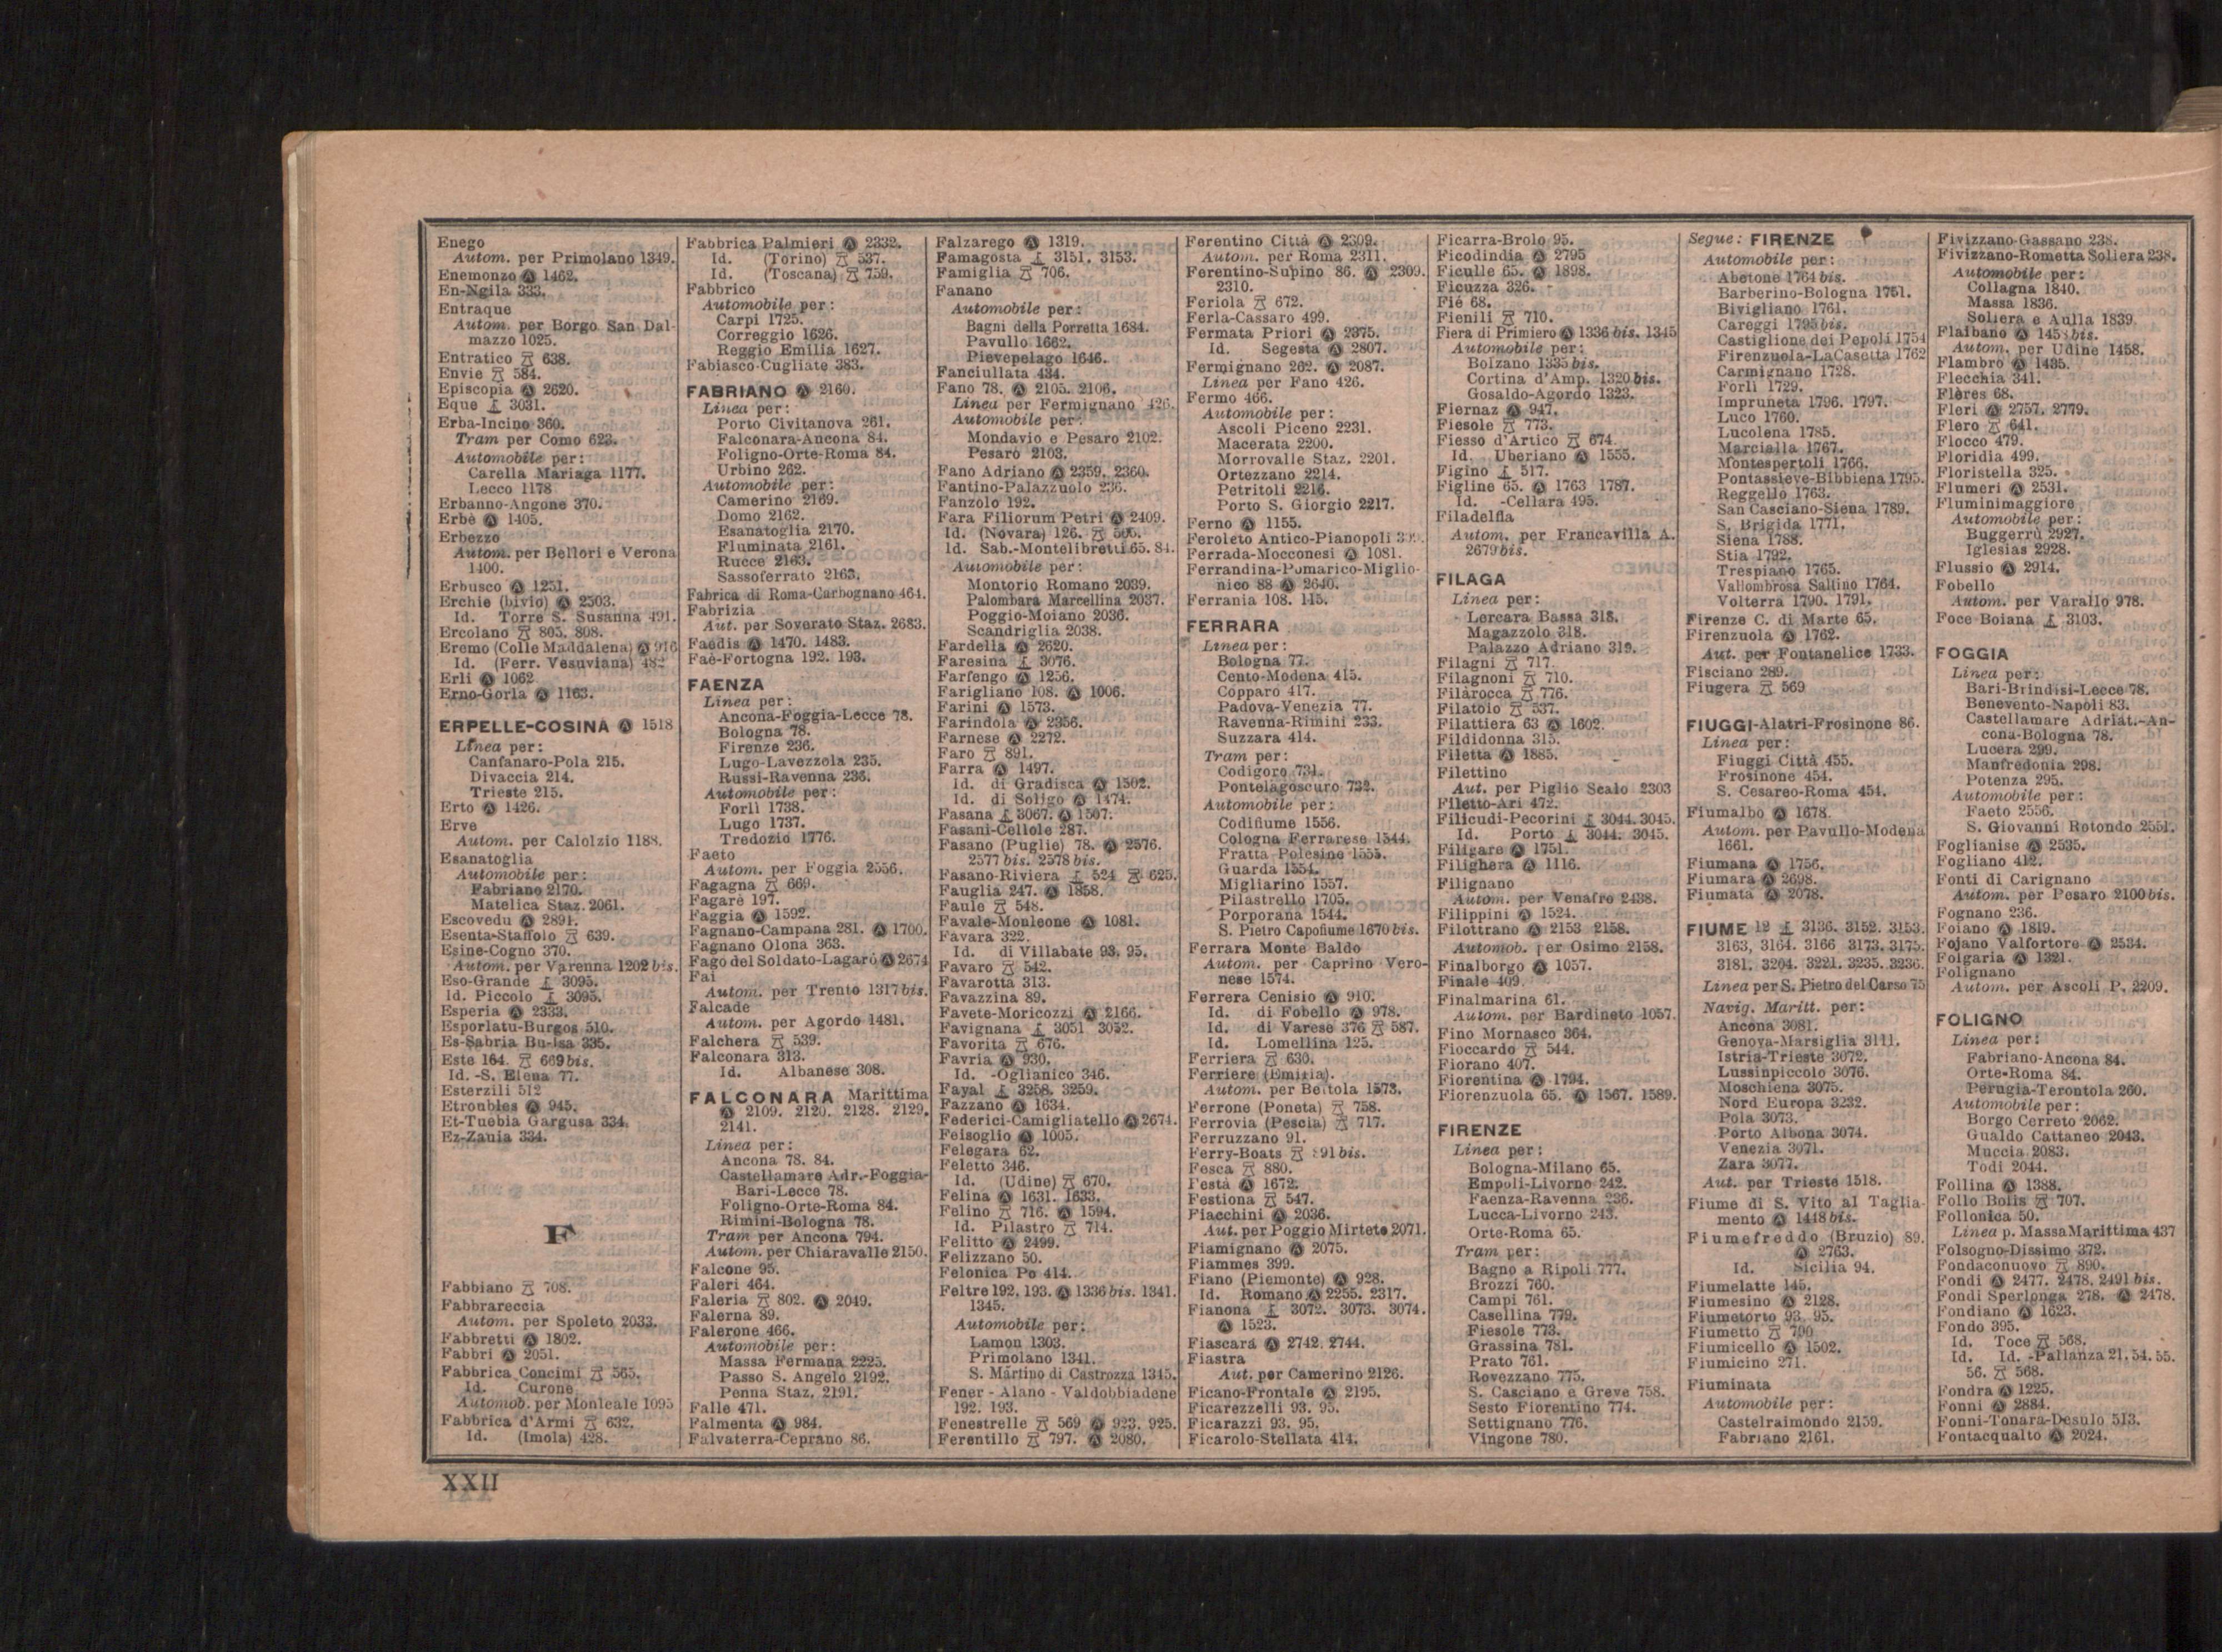 Enego
Autom. per Primolano 1349.
Enemonzo Ⓐ 1462.
En-Ngila 333.
Entraque
Autom. per Borgo San Dal-
mazzo 1025.
Entratico 638.
Envie 584.
Episcopia Ⓐ 2620.
Eque 3031.
Erba-Incino 360.
Tram per Como 623.
Automobile per:
Carella Mariaga 1177.
Lecco 1178
Erbanno-Angone 370.
Erbè Ⓐ 1405.
Erbezzo
Autom. per Bellori e Verona
1400.
Erbusco Ⓐ 1251.
Erchie (bivio) Ⓐ 2503.
Id. Torre S. Susanna 491.
Ercolano 805. 808.
Eremo (Colle Maddalena) Ⓐ 916
Id. (Ferr. Vesuviana) 482
Erli Ⓐ 1062
Erno-Gorla Ⓐ 1163.
ERPELLE-COSINA Ⓐ 1518
Linea per:
Canfanaro-Pola 215.
Divaccia 214.
Trieste 215.
Erto Ⓐ 1426.
Erve
Autom. per Calolzio 1188.
Esanatoglia
Automobile per:
Fabriano 2170.
Matelica Staz. 2061.
Escovedu Ⓐ 2891.
Esenta-Staffolo 639.
Esine-Cogno 370.
Autom. per Varenna 1202 bis.
Eso-Grande 3095.
Id. Piccolo 3095.
Esperia Ⓐ 2333.
Esporlatu-Burgos 510.
Es-Sabria Bu-Isa 335.
Este 164. 669 bis.
Id. -S. Elena 77.
Esterzili 512
Etroubles Ⓐ 945.
Et-Tuebia Gargusa 334.
Ez-Zauia 334.
F
Fabbiano 708.
Fabbrareccia
Autom. per Spoleto 2033.
Fabbretti Ⓐ 1802.
Fabbri Ⓐ 2051.
Fabbrica Concimi 565.
Id. Curone
Automob. per Monleale 1095
Fabbrica d'Armi 632.
Id. (Imola) 428.
Fabbrica Palmieri Ⓐ 2332.
Id. (Torino) 537.
Id. (Toscana) 759.
Fabbrico
Automobile per:
Carpi 1725.
Correggio 1626.
Reggio Emilia 1627.
Fabiasco-Cugliate 383.
FABRIANO Ⓐ 2160.
Linea per:
Porto Civitanova 261.
Falconara-Ancona 84.
Foligno-Orte-Roma 84.
Urbino 262.
Automobile per:
Camerino 2169.
Domo 2162.
Esanatoglia 2170.
Fluminata 2161.
Rucce 2163.
Sassoferrato 2163.
Fabrica di Roma-Carbognano 464.
Fabrizia
Aut. per Soverato Staz. 2683.
Faedis Ⓐ 1470. 1483.
Faè-Fortogna 192. 193.
FAENZA
Linea per:
Ancona-Foggia-Lecce 78.
Bologna 78.
Firenze 236.
Lugo-Lavezzola 235.
Russi-Ravenna 236.
Automobile per:
Forlì 1738.
Lugo 1737.
Tredozio 1776.
Faeto
Autom. per Foggia 2556.
Fagagna 669.
Fagarè 197.
Faggia Ⓐ 1592.
Fagnano-Campana 281. Ⓐ 1700.
Fagnano Olona 363.
Fago del Soldato-Lagarò Ⓐ 2674
Fai
Autom. per Trento 1317 bis.
Falcade
Autom. per Agordo 1481.
Falchera 539.
Falconara 313.
Id. Albanese 308.
FALCONARA Marittima
Ⓐ 2109. 2120. 2128. 2129.
2141.
Linea per:
Ancona 78. 84.
Castellamare Adr.-Foggia-
Bari-Lecce 78.
Foligno-Orte-Roma 84.
Rimini-Bologna 78.
Tram per Ancona 794.
Autom. per Chiaravalle 2150.
Falcone 95.
Faleri 464.
Faleria 802. Ⓐ 2049.
Falerna 89.
Falerone 466.
Automobile per:
Massa Fermana 2225.
Passo S. Angelo 2192.
Penna Staz. 2191.
Falle 471.
Falmenta Ⓐ 984.
Falvaterra-Ceprano 86.
Falzarego Ⓐ 1319.
Famagosta 3151. 3153.
Famiglia 706.
Fanano
Automobile per:
Bagni della Porretta 1684.
Pavullo 1662.
Pievepelago 1646.
Fanciullata 434.
Fano 78. Ⓐ 2105. 2106.
Linea per Fermignano 426.
Automobile per:
Mondavio e Pesaro 2102.
Pesaro 2103.
Fano Adriano Ⓐ 2359. 2360.
Fantino-Palazzuolo 236.
Fanzolo 192.
Fara Filiorum Petri Ⓐ 2409.
Id. (Novara) 126. 505.
Id. Sab.-Montelibretti 65. 84.
Automobile per:
Montorio Romano 2039.
Palombara Marcellina 2037.
Poggio-Moiano 2036.
Scandriglia 2038.
Fardella Ⓐ 2620.
Faresina 3076.
Farfengo Ⓐ 1256.
Farigliano 108. Ⓐ 1006.
Farini Ⓐ 1573.
Farindola Ⓐ 2356.
Farnese Ⓐ 2272.
Faro 891.
Farra Ⓐ 1497.
Id. di Gradisca Ⓐ 1502.
Id. di Soligo Ⓐ 1474.
Fasana 3067. Ⓐ 1507.
Fasani-Cellole 287.
Fasano (Puglie) 78. Ⓐ 2576.
2577 bis. 2578 bis.
Fasano-Riviera 524 625.
Fauglia 247. Ⓐ 1858.
Faule 548.
Favale-Monleone Ⓐ 1081.
Favara 322.
Id. di Villabate 93. 95.
Favaro 542.
Favarotta 313.
Favazzina 89.
Favete-Moricozzi Ⓐ 2166.
Favignana 3051 3052.
Favorita 676.
Favria Ⓐ 930.
Id. -Oglianico 346.
Fayal 3258. 3259.
Fazzano Ⓐ 1634.
Federici-Camigliatello Ⓐ 2674.
Feisoglio Ⓐ 1005.
Felegara 62.
Feletto 346.
Id. (Udine) 670.
Felina Ⓐ 1631. 1633.
Felino 716. Ⓐ 1594.
Id. Pilastro 714.
Felitto Ⓐ 2499.
Felizzano 50.
Felonica Po 414.
Feltre 192. 193. Ⓐ 1336 bis. 1341.
1345.
Automobile per:
Lamon 1303.
Primolano 1341.
S. Martino di Castrozza 1345.
Fener - Alano - Valdobbiadene
192. 193.
Fenestrelle 569 Ⓐ 923. 925.
Ferentillo 797. Ⓐ 2080.
Ferentino Città Ⓐ 2309.
Autom. per Roma 2311.
Ferentino-Supino 86. Ⓐ 2309.
2310.
Feriola 672.
Ferla-Cassaro 499.
Fermata Priori Ⓐ 2375.
Id. Segesta Ⓐ 2807.
Fermignano 262. Ⓐ 2087.
Linea per Fano 426.
Fermo 466.
Automobile per:
Ascoli Piceno 2231.
Macerata 2200.
Morrovalle Staz. 2201.
Ortezzano 2214.
Petritoli 2216.
Porto S. Giorgio 2217.
Ferno Ⓐ 1155.
Feroleto Antico-Pianopoli
Ferrada-Mocconesi Ⓐ 1081.
Ferrandina-Pomarico-Miglio-
nico 88 Ⓐ 2640.
Ferrania 108. 115.
FERRARA
Linea per:
Bologna 77.
Cento-Modena 415.
Copparo 417.
Padova-Venezia 77.
Ravenna-Rimini 233.
Suzzara 414.
Tram per:
Codigoro 731.
Pontelagoscuro 732.
Automobile per:
Codifiume 1556.
Cologna Ferrarese 1544.
Fratta Polesine 1555.
Guarda 1554.
Migliarino 1557.
Pilastrello 1705.
Porporana 1544.
S. Pietro Capofiume 1670 bis.
Ferrara Monte Baldo
Autom. per Caprino Vero-
nese 1574.
Ferrera Cenisio Ⓐ 910.
Id. di Fobello Ⓐ 978.
Id. di Varese 376 587.
Id. Lomellina 125.
Ferriera 630.
Ferriere (Emilia).
Autom. per Bettola 1573.
Ferrone (Poneta) 758.
Ferrovia (Pescia) 717.
Ferruzzano 91.
Ferry-Boats 891 bis.
Fesca 880.
Festà Ⓐ 1672.
Festiona 547.
Fiacchini Ⓐ 2036.
Aut. per Poggio Mirteto 2071.
Fiamignano Ⓐ 2075.
Fiammes 399.
Fiano (Piemonte) Ⓐ 928.
Id. Romano Ⓐ 2255. 2317.
Fianona 3072. 3073. 3074.
Ⓐ 1523.
Fiascarà Ⓐ 2742. 2744.
Fiastra
Aut. per Camerino 2126.
Ficano-Frontale Ⓐ 2195.
Ficarezzelli 93. 95.
Ficarazzi 93. 95.
Ficarolo-Stellata 414.
Ficarra-Brolo 95.
Ficodindia Ⓐ 2795
Ficulle 65. Ⓐ 1898.
Ficuzza 326.
Fié 68.
Fienili 710.
Fiera di Primiero Ⓐ 1336 bis. 1345
Automobile per:
Bolzano 1335 bis.
Cortina d'Amp. 1320 bis.
Gosaldo-Agordo 1323.
Fiernaz Ⓐ 947.
Fiesole 773.
Fiesso d'Artico 674.
Id. Uberiano Ⓐ 1555.
Figino 517.
Figline 65. Ⓐ 1763 1787.
Id. -Cellara 495.
Filadelfia
Autom. per Francavilla A.
2679 bis.
FILAGA
Linea per:
Lercara Bassa 318.
Magazzolo 318.
Palazzo Adriano 319.
Filagni 717.
Filagnoni 710.
Filarocca 776.
Filatoio 537.
Filattiera 63 Ⓐ 1602.
Fildidonna 315.
Filetta Ⓐ 1885.
Filettino
Aut. per Piglio Scalo 2303
Filetto-Ari 472.
Filicudi-Pecorini 3044. 3045.
Id. Porto 3044. 3045.
Filigare Ⓐ 1751.
Filighera Ⓐ 1116.
Filignano
Autom. per Venafro 2438.
Filippini Ⓐ 1524.
Filottrano Ⓐ 2153 2158.
Automob. per Osimo 2158.
Finalborgo Ⓐ 1057.
Finale 409.
Finalmarina 61.
Autom. per Bardineto 1057.
Fino Mornasco 364.
Fioccardo 544.
Fiorano 407.
Fiorentina Ⓐ 1794.
Fiorenzuola 65. Ⓐ 1567. 1589.
FIRENZE
Linea per:
Bologna-Milano 65.
Empoli-Livorno 242.
Faenza-Ravenna 236.
Lucca-Livorno 243.
Orte-Roma 65.
Tram per:
Bagno a Ripoli 777.
Brozzi 760.
Campi 761.
Casellina 779.
Fiesole 773.
Grassina 781.
Prato 761.
Rovezzano 775.
S. Casciano e Greve 758.
Sesto Fiorentino 774.
Settignano 776.
Vingone 780.
Segue: FIRENZE
Automobile per:
Abetone 1764 bis.
Barberino-Bologna 1751.
Bivigliano 1761.
Careggi 1795 bis.
Castiglione dei Pepoli 1754
Firenzuola-La Casetta 1762
Carmignano 1728.
Forlì 1729.
Impruneta 1796. 1797.
Luco 1760.
Lucolena 1785.
Marciella 1767.
Montespertoli 1766.
Pontassieve-Bibbiena 1795.
Reggello 1763.
San Casciano-Siena 1789.
S. Brigida 1771.
Siena 1788.
Stia 1792.
Trespiano 1765.
Vallombrosa Saltino 1764.
Volterra 1790. 1791.
Firenze C. di Marte 65.
Firenzuola Ⓐ 1762.
Aut. per Fontanelice 1733.
Fisciano 289.
Fiugera 569
FIUGGI-Alatri-Frosinone 86.
Linea per:
Fiuggi Città 455.
Frosinone 454.
S. Cesareo-Roma 454.
Fiumalbo Ⓐ 1678.
Autom. per Pavullo-Modena
1661.
Fiumana Ⓐ 1756.
Fiumara Ⓐ 2698.
Fiumata Ⓐ 2078.
FIUME 12 3136. 3152. 3153.
3163, 3164. 3166 3173. 3175.
3181. 3204. 3221. 3235. 3236.
Linea per S. Pietro del Carso 75
Navig. Maritt. per:
Ancona 3081.
Genova-Marsiglia 3111.
Istria-Trieste 3072.
Lussinpiccolo 3076.
Moschiena 3075.
Nord Europa 3232.
Pola 3073.
Porto Albona 3074.
Venezia 3071.
Zara 3077.
Aut. per Trieste 1518.
Fiume di S. Vito al Taglia-
mento Ⓐ 1448 bis.
Fiumefreddo (Bruzio) 89.
Ⓐ 2763.
Id. Sicilia 94.
Fiumelatte 145.
Fiumesino Ⓐ 2128.
Fiumetorto 93. 95.
Fiumetto 790
Fiumicello Ⓐ 1502.
Fiumicino 271.
Fiuminata
Automobile per:
Castelraimondo 2159.
Fabriano 2161.
Fivizzano-Gassano 238.
Fivizzano-Rometta Soliera 238.
Automobile per:
Collagna 1840.
Massa 1836.
Soliera e Aulla 1839.
Flaibano Ⓐ 1458 bis.
Autom. per Udine 1458.
Flambro Ⓐ 1435.
Flecchia 341.
Flères 68.
Fleri Ⓐ 2757. 2779.
Flero 641.
Flocco 479.
Floridia 499.
Floristella 325.
Flumeri Ⓐ 2531.
Fluminimaggiore
Automobile per:
Buggerru 2927.
Iglesias 2928.
Flussio Ⓐ 2914.
Fobello
Autom. per Varallo 978.
Foce Boiana 3103.
FOGGIA
Linea per:
Bari-Brindisi-Lecce 78.
Benevento-Napoli 83.
Castellamare Adriat.-An-
cona-Bologna 78.
Lucera 299.
Manfredonia 298.
Potenza 295.
Automobile per:
Faeto 2556.
S. Giovanni Rotondo 2551.
Foglianise Ⓐ 2535.
Fogliano 412.
Fonti di Carignano
Autom. per Pesaro 2100 bis.
Fognano 236.
Foiano Ⓐ 1819.
Fojano Valfortore Ⓐ 2534.
Folgaria Ⓐ 1321.
Folignano
Autom. per Ascoli P. 2209.
FOLIGNO
Linea per:
Fabriano-Ancona 84.
Orte-Roma 84.
Perugia-Terontola 260.
Automobile per:
Borgo Cerreto 2062.
Gualdo Cattaneo 2043.
Muccia 2083.
Todi 2044.
Follina Ⓐ 1388.
Follo Bolis 707.
Follonica 50.
Linea p. Massa Marittima 437
Folsogno-Dissimo 372.
Fondaconuovo 890.
Fondi Ⓐ 2477. 2478. 2491 bis.
Fondi Sperlonga 278. Ⓐ 2478.
Fondiano Ⓐ 1623.
Fondo 395.
Id. Toce 568.
Id. Id. -Pallanza 21. 54. 55.
56. 568.
Fondra Ⓐ 1225.
Fonni Ⓐ 2884.
Fonni-Tonara-Desulo 513.
Fontacqualto Ⓐ 2024.
XXII